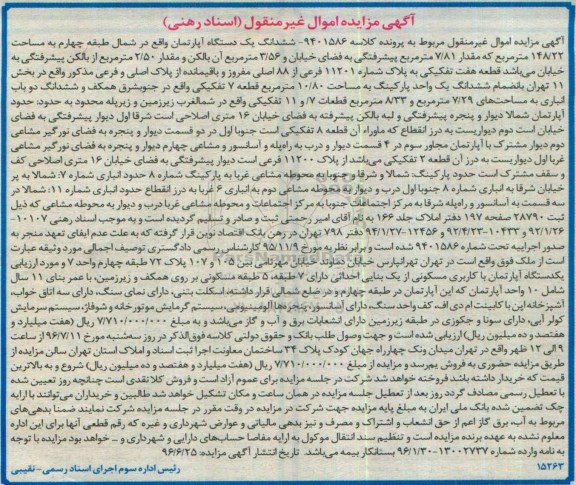 آگهی مزایده اموال غیر منقول (اسناد رهنی)
آگهی مزایده اموال غیرمنقول مربوط به پرونده کلاسه ۹۴۰۱۵۸۶- ششدانگ یک دستگاه آپارتمان واقع در شمال طبقه چهارم به مساحت
۱۴۸/۲۲ مترمربع که مقدار ۷/۸۱ مترمربع پیشرفتگی به فضای خیابان و ۳/۵۶ مترمربع آن بالکن و مقدار ۲/۵۰ مترمربع از بالکن پیشرفتگی به
خیابان می‌باشد قطعه هفت تفکیکی به پلاک شماره ۱۱۲۰۱ فرعی از ۸۸ اصلی مفروز و باقیمانده از پلاک اصلی و فرعی مذکور واقع در بخش
۱۱ تهران بانضمام ششدانگ یک واحد پارکینگ به مساحت ۱۰/۸۰ مترمربع قطعه ۷ تفکیکی واقع در جنوبشرق همکف و ششدانگ دو باب
انباری به مساحت‌های ۷/۲۹ مترمربع و ۸/۳۳ مترمربع قطعات ۷/ و ۱۱ تفکیکی واقع در شمالغرب زیرزمین و زیرپله محدود به حدود: حدود
آپارتمان شمالا دیوار و پنجره پیشرفتگی و لبه بالکن پیشرفته به فضای خیابان ۱۶ متری اصلاحی است شرقا اول دیوار پیشرفتگی به فضای
خیابان است دوم دیواریست به درز انقطاع که ماوراء آن قطعه ۸ تفکیکی است جنوبا اول در دو قسمت دیوار و پنجره به فضای نورگیر مشاعی
دوم دیوار مشترک با آپارتمان مجاور سوم در ۴ قسمت دیوار و درب به راه‌پله و آسانسور و مشاعی چهارم دیوار و پنجره به فضای نورگیر مشاعی
غربا اول دیواریست به درز آن قطعه ۲ تفکیکی می‌باشد از پلاک ۱۱۲۰۰ فرعی است دیوار پیشرفتگی به فضای خیابان ۱۶ متری اصلاحی کف
و سقف مشترک است حدود پارکینگ: شمالا و شرقا و جنوبا به محوطه مشاعی غربا به پارکینگ شماره ۸ حدود انباری شماره ۷: شمالا به پر
خیابان شرقا به انباری شماره ۸ جنوبا اول درب و دیوار به محوطه مشاعی دوم به انباری ۶ غربا به درز انقطاع حدود انباری شماره ۱۱: شمالا در
سه قسمت به آسانسور و راه‌پله شرقا به مرکز اجتماعات جنوبا به مرکز اجتماعات و محوطه مشاعی غربا درب و دیوار به محوطه مشاعی که ذیل
ثبت ۲۸۷۹۰ صفحه ۱۹۷ دفتر املاک جلد ۱۶۶ به نام آقای امیر رحمتی ثبت و صادر و تسلیم گردیده است و به موجب اسناد رهنی ۱۰۱۰۷-
۹۲/۱/۲۶ و ۱۰۴۳۳-۹۲/۴/۲۳ و ۱۲۴۵۶-۹۴/۱/۲۷ دفتر ۷۹۸ تهران در رهن بانک اقتصاد نوین قرار گرفته که به علت عدم ایفای تعهد منجر به
صدور اجراییه تحت شماره ۹۴۰۱۵۸۶ شده است و برابر نظریه مورخ ۹۵/۱۱/۹ کارشناس رسمی دادگستری توصیف اجمالی مورد وثیقه عبارت
است از ملک فوق واقع است در تهران تهرانپارس خیابان خیابان ۱۰۵ و ۱۰۷ پلاک ۷۲ طبقه چهارم واحد ۷ و مورد ارزیابی
یکدستگاه آپارتمان با کاربری مسکونی از یک بنایی احداثی دارای ۷ طبقه، ۵ طبقه مسکونی بر روی همکف و زیرزمین، با عمر بنای ۱۱ سال
شامل ۱۰ واحد آپارتمان که این آپارتمان در طبقه چهارم و در ضلع شمالی قرار داشته، اسکلت بتنی، دارای نمای سنگ، دارای سه اتاق خواب،
آشپزخانه اپن با کابینت ام دی اف، کف واحد سنگ، دارای آسانسور، پنجره‌ها آلومینیومی، سیستم گرمایش موتورخانه و شوفاژ، سیستم سرمایش
کولر آبی، دارای سونا و جکوزی در طبقه زیرزمین دارای انشعابات برق و آب و گاز می‌باشد و به مبلغ ۷/۷۱۰/۰۰۰/۰۰۰ ریال (هفت میلیارد و
هفتصد و ده میلیون ریال) ارزیابی شده است و جهت وصول طلب بانک و حقوق دولتی کلاسه فوق‌الذکر در روز سه‌شنبه مورخ ۹۶/۷/۱۱ از ساعت
۹ الی ۱۲ ظهر واقع در تهران میدان ونک چهارراه جهان کودک پلاک ۳۴ ساختمان معاونت اجرا ثبت اسناد و املاک استان تهران سالن مزایده از
طریق مزایده حضوری به فروش میرسد و مزایده از مبلغ ۷/۷۱۰/۰۰۰/۰۰۰ ریال (هفت میلیارد و هفتصد و ده میلیون ریال) شروع و به بالاترین
قیمت که خریدار داشته باشد فروخته خواهد شد شرکت در جلسه مزایده برای عموم آزاد است و فروش کلا نقدی است چنانچه روز تعیین شده
با تعطیل رسمی مصادف گردد روز بعد از تعطیل جلسه مزایده در همان ساعت و مکان تشکیل خواهد شد طالبین و خریداران می‌توانند با ارایه
چک تضمین شده بانک ملی ایران به مبلغ پایه مزایده جهت شرکت در مزایده در وقت مقرر در جلسه مزایده شرکت نمایند ضمنا بدهی‌های
مربوط به آب، برق گاز اعم از حق انشعاب و اشتراک و مصرف و نیز بدهی مالیاتی و عوارض شهرداری و غیره که رقم قطعی آنها برای این اداره
معلوم نشده به عهده برنده مزایده است و تنظیم سند انتقال موکول به ارایه مفاصا حساب‌های دارایی و شهرداری و ... خواهد بود مزایده با توجه
به نامه وارده شماره ۱۳۰۰۲۷۳۷-۹۶/۱/۳۰ بستانکار بیمه می‌باشد. تاریخ انتشار آگهی مزایده: ۹۶/۶/۲۵
۱۵۲۶۳ رئیس اداره سوم اجرای اسناد رسمی- نقیبی